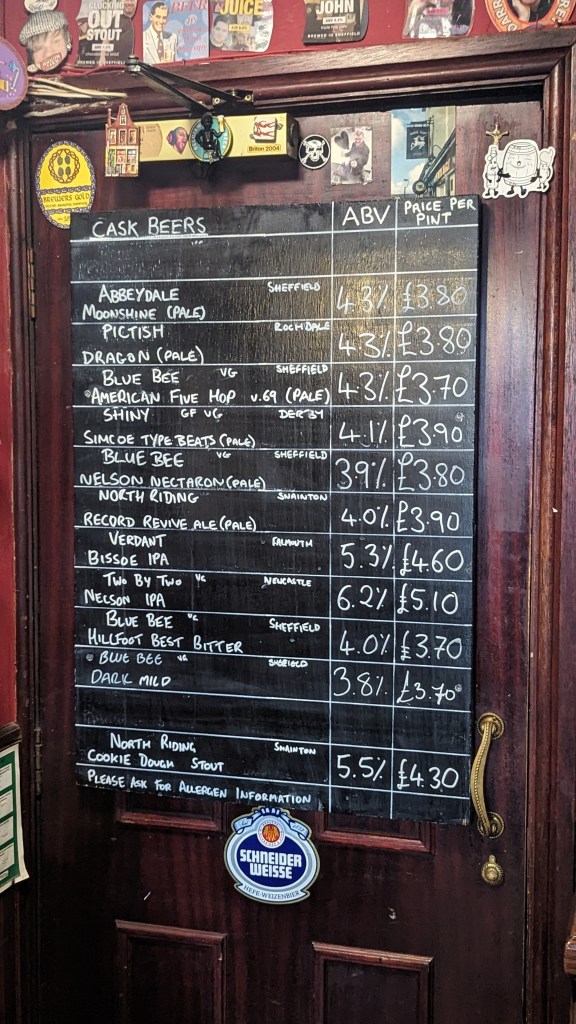 CLOCKING
OUT
STOUT
BREWED IN SHEFFIELD
JUICE
JOHN
BREWED IN SHEFFIELD
Briton 2004
BREWERS GOLD
CASK BEERS ABV PRICE PER PINT
ABBEYDALE SHEFFIELD
MOONSHINE (PALE) 4.3% £3.80
PICTISH ROCHDALE
DRAGON (PALE) 4.3% £3.80
BLUE BEE VG SHEFFIELD
AMERICAN FIVE HOP V.69 (PALE) 4.3% £3.70
SHINY GF VG DERBY
SIMCOE TYPE BEATS (PALE) 4.1% £3.90
BLUE BEE VG SHEFFIELD
NELSON NECTARON (PALE) 3.9% £3.80
NORTH RIDING SNAINTON
RECORD REVIVE ALE (PALE) 4.0% £3.90
VERDANT FALMOUTH
BISSOE IPA 5.3% £4.60
TWO BY TWO VG NEWCASTLE
NELSON IPA 6.2% £5.10
BLUE BEE VG SHEFFIELD
HILLFOOT BEST BITTER 4.0% £3.70
BLUE BEE VG SHEFFIELD
DARK MILD 3.8% £3.70
NORTH RIDING SNAINTON
COOKIE DOUGH STOUT 5.5% £4.30
PLEASE ASK FOR ALLERGEN INFORMATION
SCHNEIDER
WEISSE
HEFE-WEIZENBIER